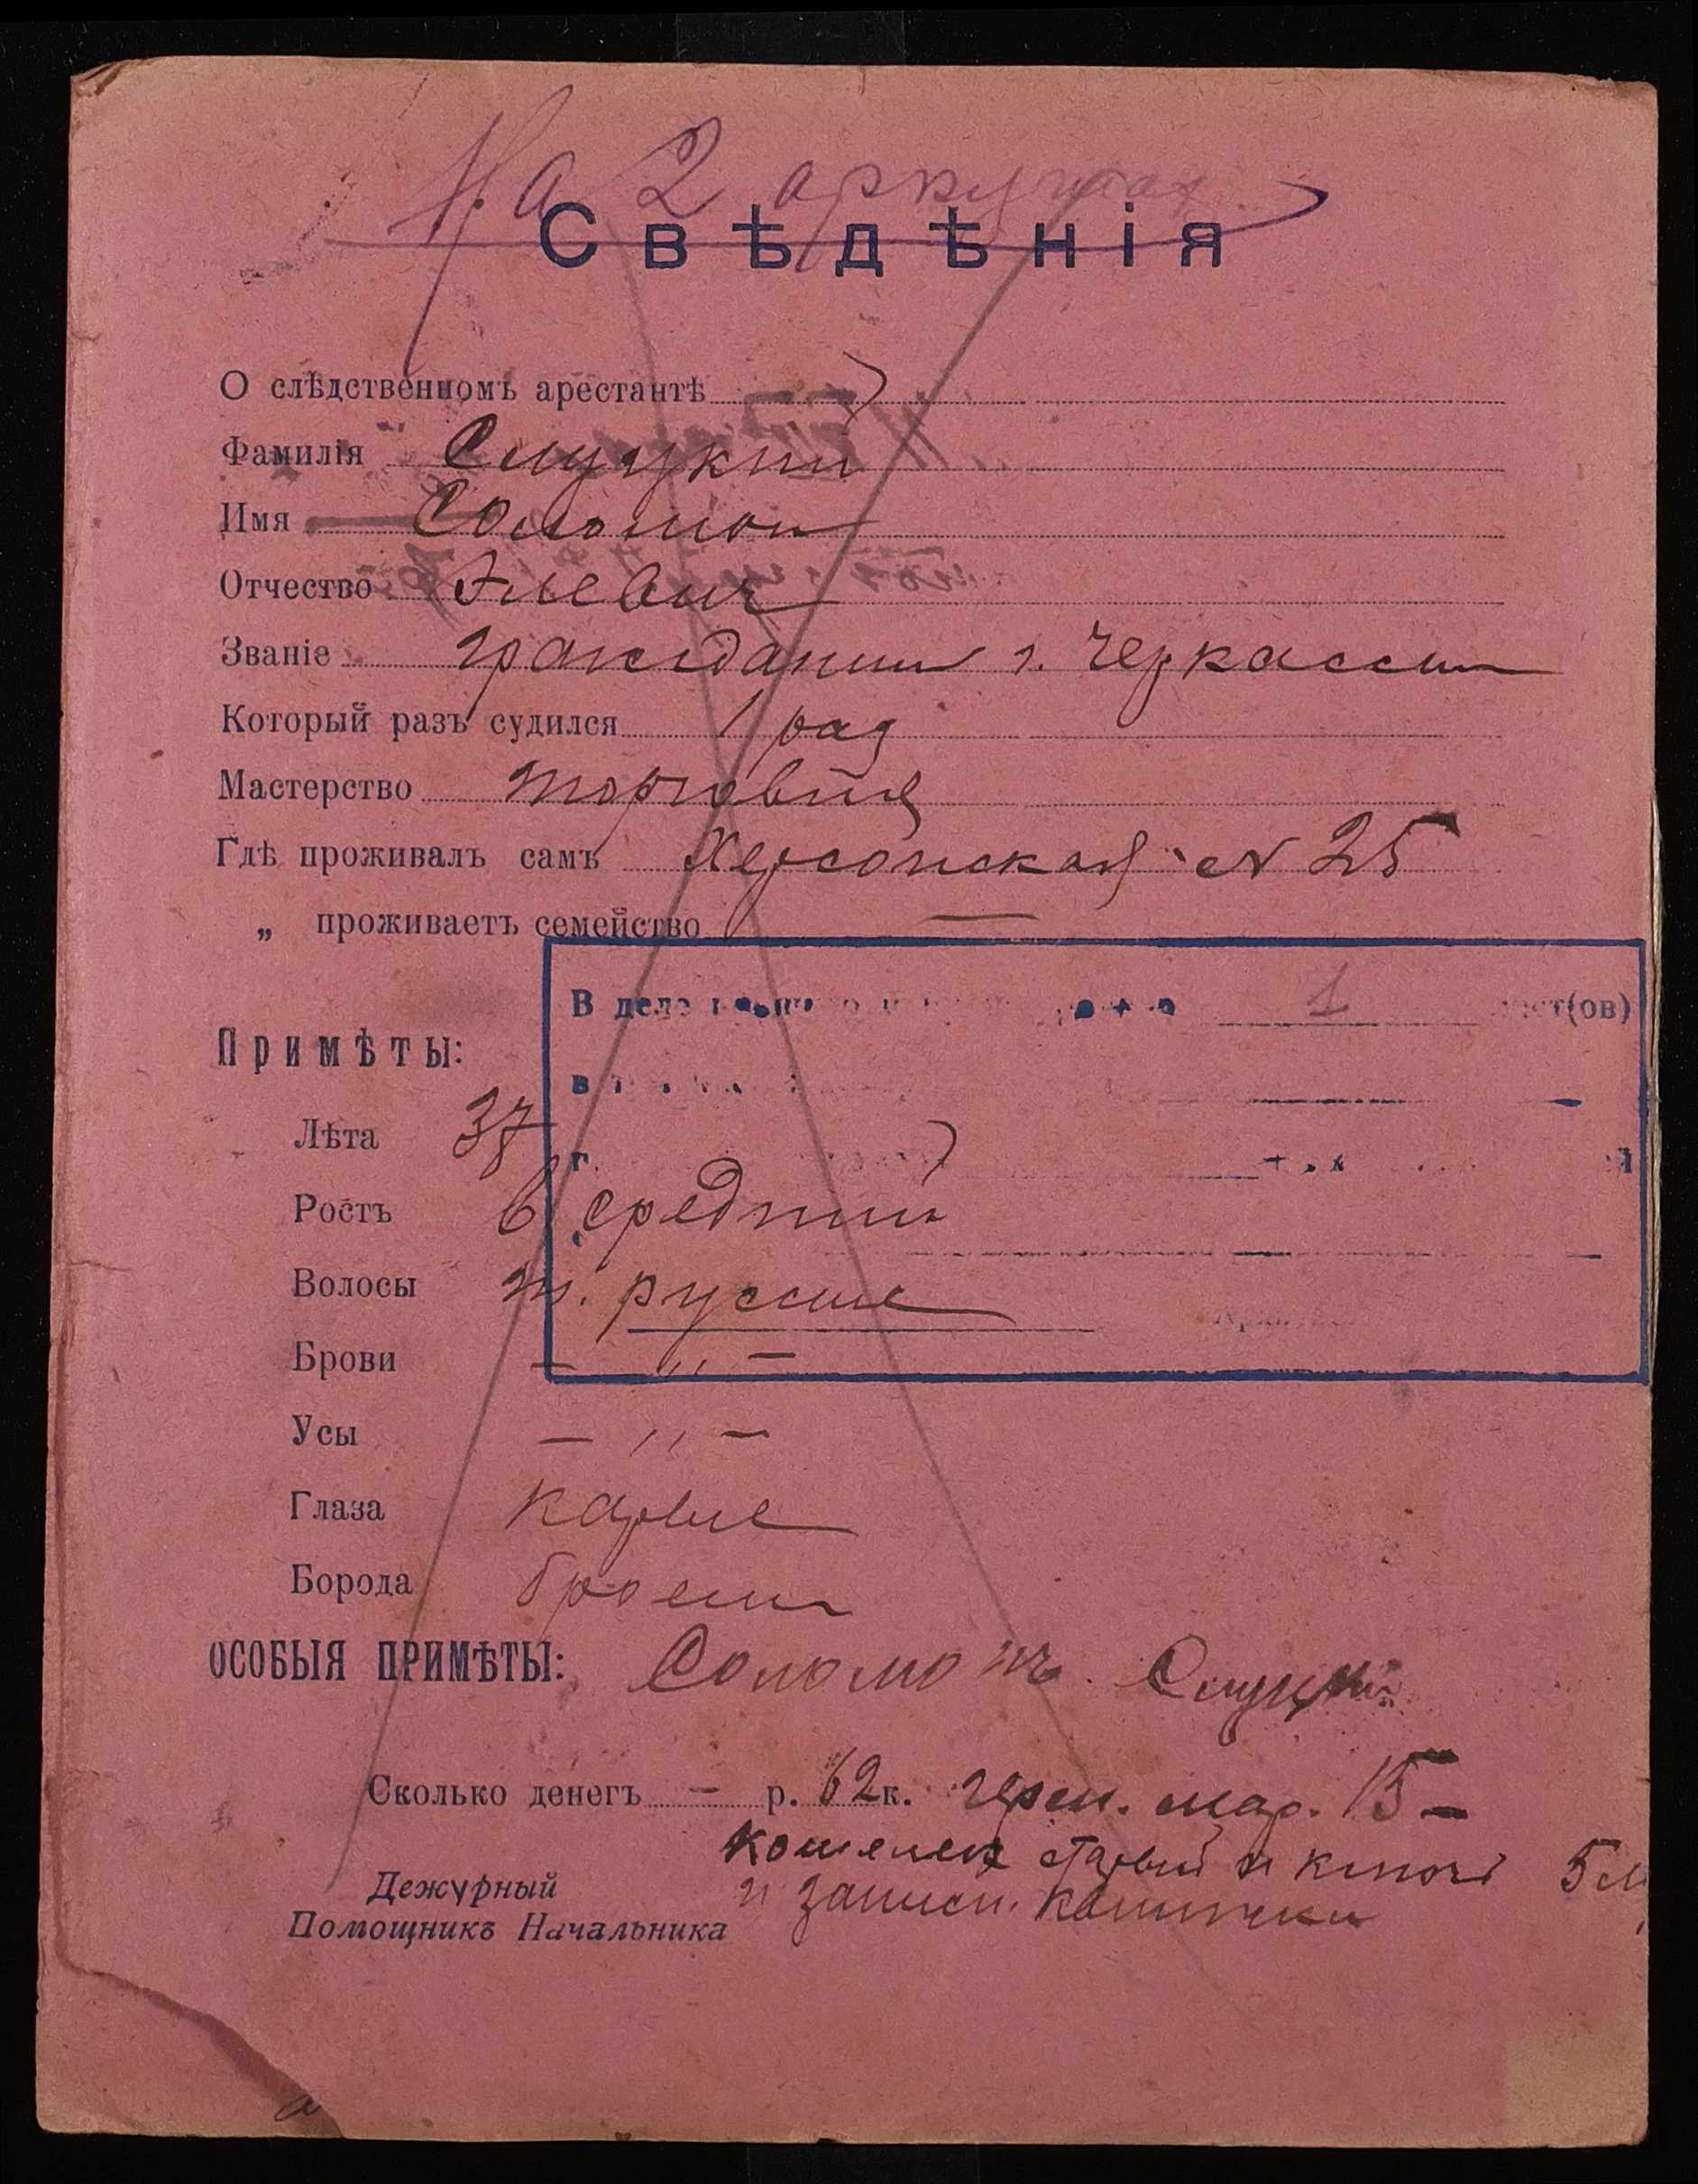 На 2 аркушах
Свѣдѣнія
О слѣдственномъ арестантѣ
Фамилія Слуцкий
Имя Соломон
Отчество Элевич
Званіе гражданин г. Черкассы
Который разъ судился 1 раз
Мастерство торговля
Гдѣ проживалъ самъ Херсонская № 25
„ проживаетъ семейство —
В деле 1 лист(ов)
Примѣты:
Лѣта 37
Ростъ в. средний
Волосы т. русые
Брови — „ —
Усы — „ —
Глаза карие
Борода бреет
ОСОБЫЯ ПРИМѢТЫ: Соломонъ Слуцкий
Сколько денегъ — р. 62 к. герм. мар. 15 —
кошелек старый и ключ 5
Дежурный и записн. книжки
Помощникъ Начальника